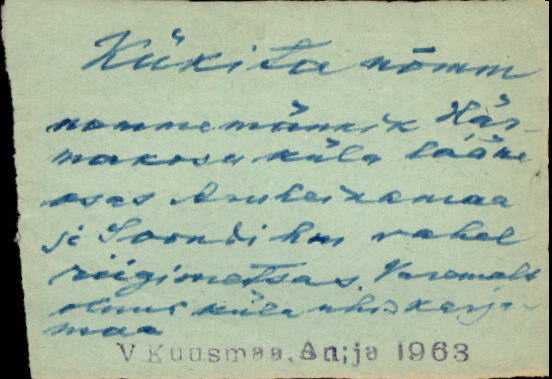 Kükita nõmm
nõmmemännik Här-
makosu küla lääne
osas Aruheinamaa
ja Soondi
vahel
riigimetsas. Varemalt
olnud küla ühiskarja-
maa
V Kuusmaa. Anija 1963